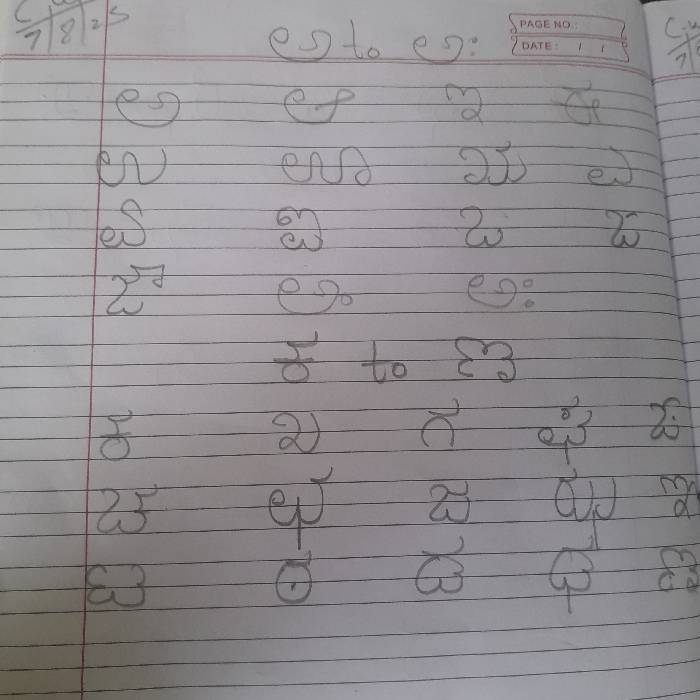 C.W
7/8/25
PAGE NO.:
DATE: / /
ಅ to ಅಃ
ಅ ಆ ಇ ಈ
ಉ ಊ ಋ ಎ
ಏ ಐ ಒ ಓ
ಔ ಅಂ ಅಃ
ಕ to ಣ
ಕ ಖ ಗ ಘ ಙ
ಚ ಛ ಜ ಝ ಞ
ಟ ಠ ಡ ಢ ಣ